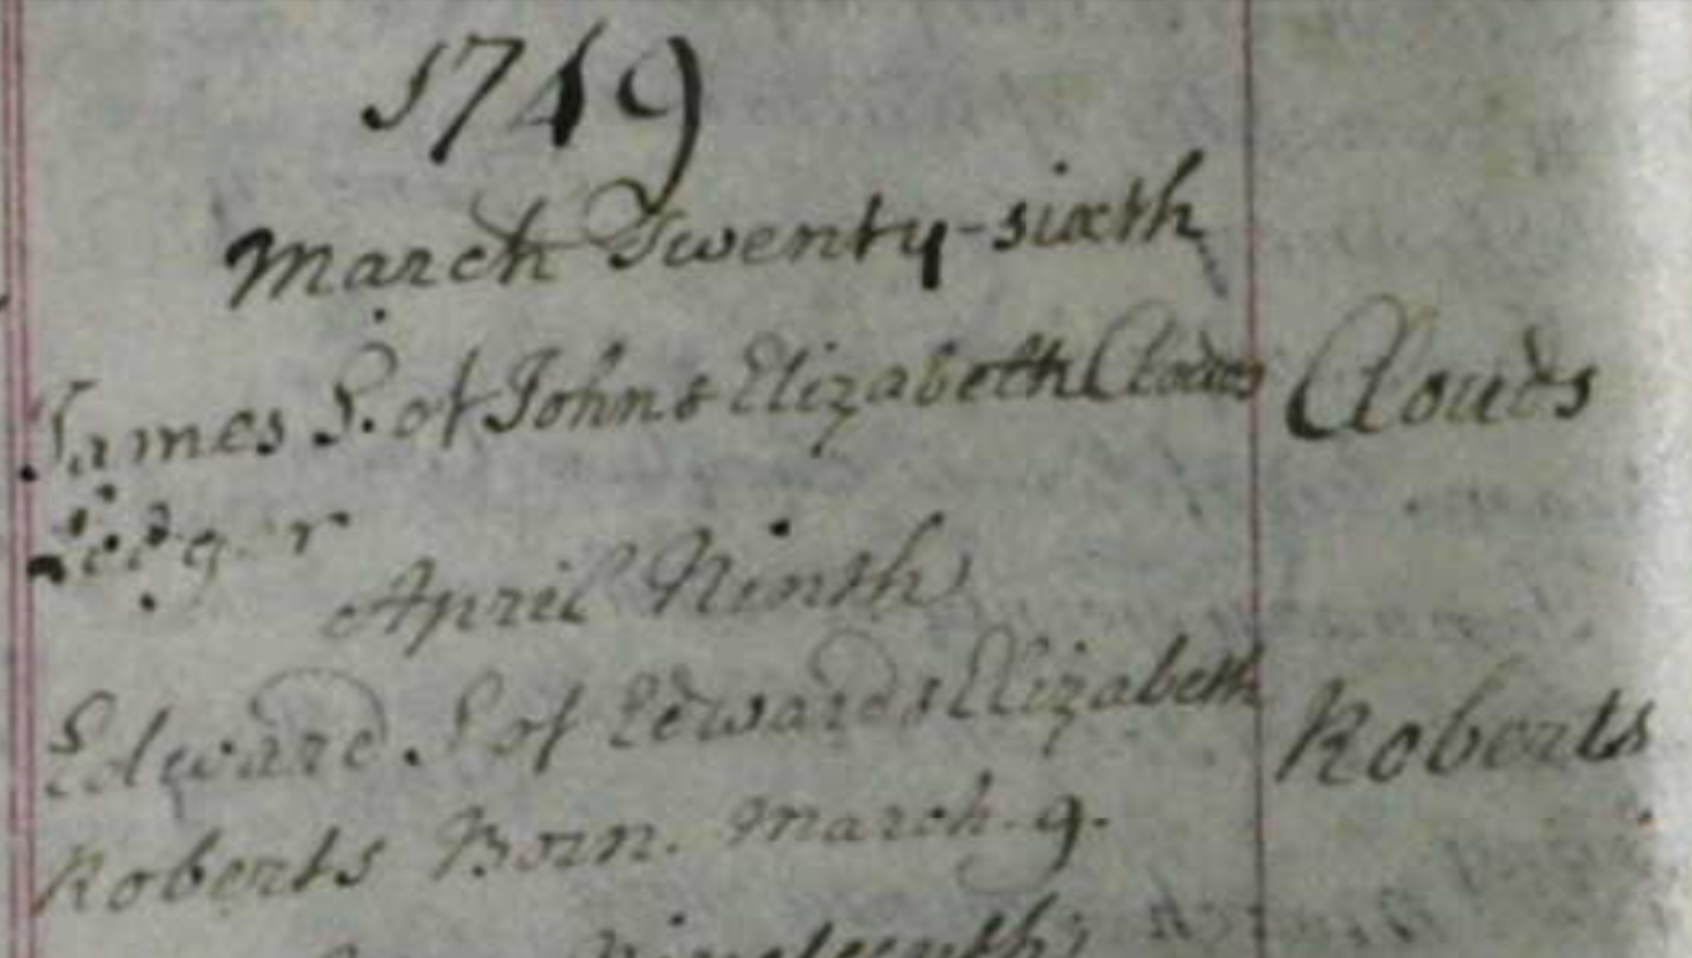 1749
March Twenty-sixth
James S. of John & Elizabeth Clouds Clouds
Ledger
April Ninth
Edward. S of Edward & Elizabeth Roberts
Roberts Born. March. 9.
Nineteenth